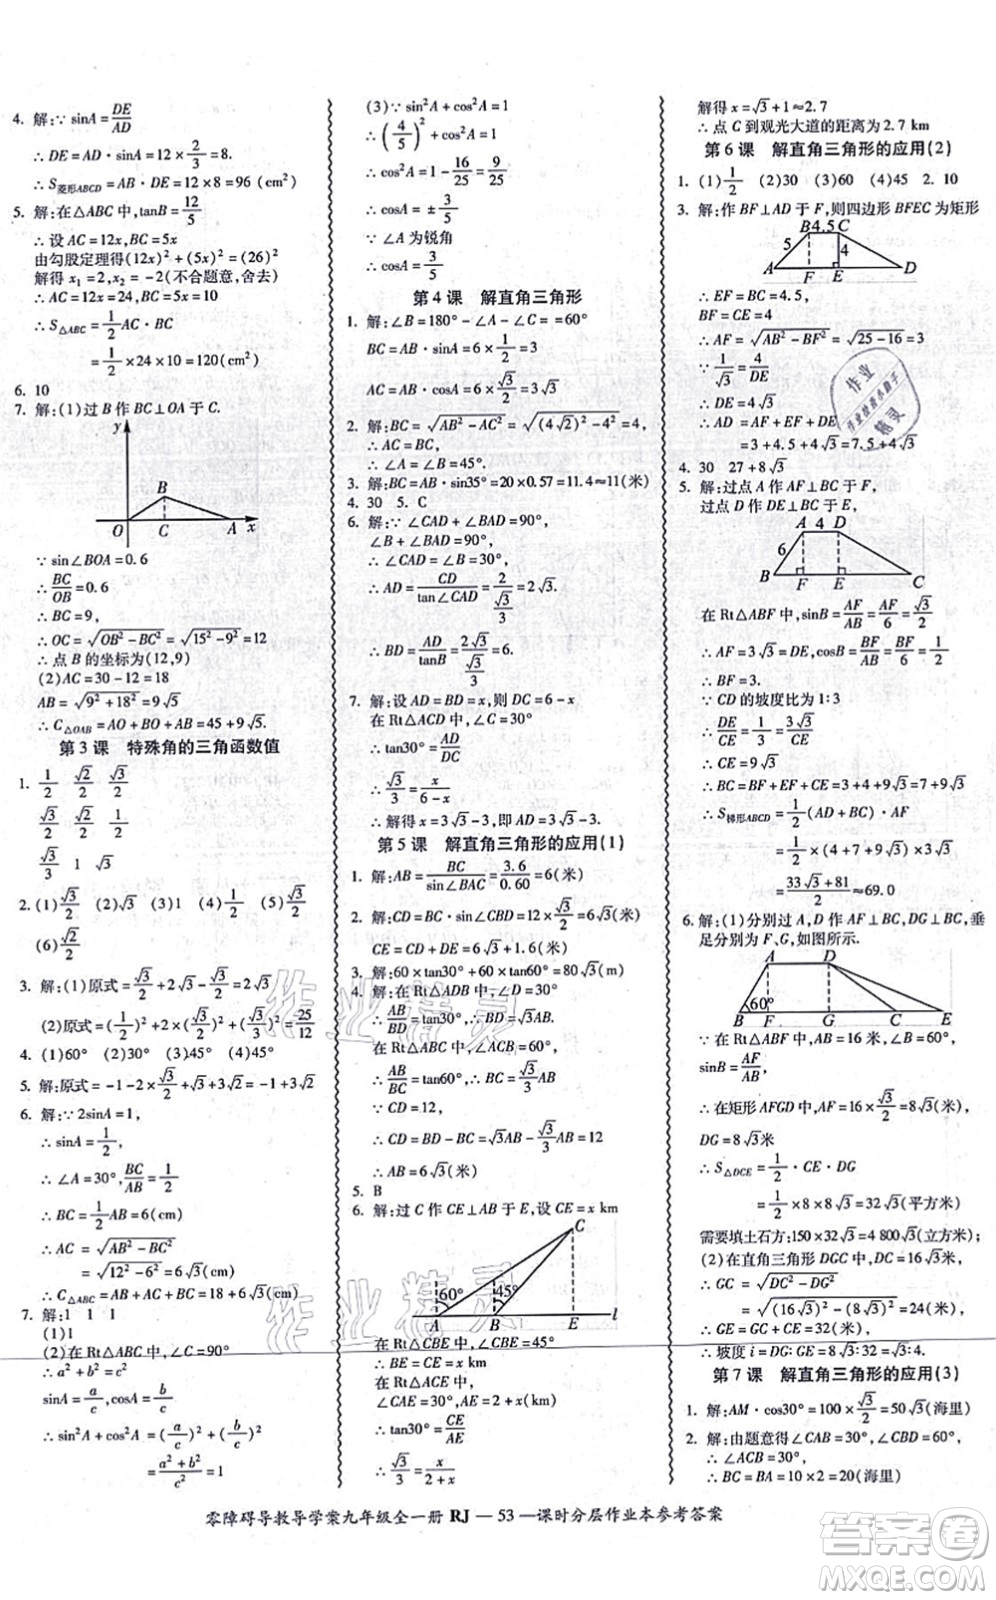 4. 解:∵ sinA = DE/AD
∴ DE = AD · sinA = 12 × 2/3 = 8.
∴ S菱形ABCD = AB · DE = 12 × 8 = 96 (cm²)
5. 解:在△ABC 中,tanB = 12/5
∴ 设 AC = 12x,BC = 5x
由勾股定理得(12x)² + (5x)² = 26²
解得 x₁ = 2,x₂ = −2(不合题意,舍去)
∴ AC = 12x = 24,BC = 5x = 10
∴ S△ABC = 1/2 AC · BC
= 1/2 × 24 × 10 = 120(cm²)
6. 10
7. 解:(1)过 B 作 BC⊥OA 于 C.
y
B
O C A x
∵ sin∠BOA = 0.6
∴ BC/OB = 0.6
∴ BC = 9,
∴ OC = √(OB² − BC²) = √(15² − 9²) = 12
∴ 点 B 的坐标为(12,9)
(2)AC = 30 − 12 = 18
AB = √(9² + 18²) = 9√5
∴ C△OAB = AO + BO + AB = 45 + 9√5.
第 3 课 特殊角的三角函数值
1. 1/2 √2/2 √3/2
√3/2 √2/2 1/2
√3/3 1 √3
2. (1)√3/2 (2)√3/3 (3)1 (4)1/2 (5)√3/2
(6)√2/2
3. 解:(1)原式 = √3/2 + 2√3 − √3/2 = 2√3
(2)原式 = (1/2)² + (√2/2)² + (√3/3)² = 25/12
4. (1)60° (2)30° (3)45° (4)45°
5. 解:原式 = −1 − 2 × √3/2 + √3 + 3√2 = 3√2 − 1
6. 解:∵ 2sinA = 1,
∴ sinA = 1/2,
∴ ∠A = 30°,BC/AB = 1/2
∴ BC = 1/2 AB = 6(cm)
∴ AC = √(AB² − BC²)
= √(12² − 6²) = 6√3 (cm)
∴ C△ABC = AB + AC + BC = 18 + 6√3 (cm)
7. 解:1 1 1
(1)1
(2)在 Rt△ABC 中,∠C = 90°
∴ a² + b² = c²
sinA = a/c,cosA = b/c
∴ sin²A + cos²A = (a/c)² + (b/c)²
= (a² + b²)/c² = 1
(3)∵ sin²A + cos²A = 1
∴ (4/5)² + cos²A = 1
∴ cos²A = 1 − 16/25 = 9/25
∴ cosA = ± 3/5
∵ ∠A 为锐角
∴ cosA = 3/5
第 4 课 解直角三角形
1. 解:∠B = 180° − ∠A − ∠C = 60°
BC = AB · sinA = 6 × 1/2 = 3
AC = AB · cosA = 6 × √3/2 = 3√3
2. BC = √(AB² − AC²) = √((4√2)² − 4²) = 4
∴ AC = BC,
∴ ∠A = ∠B = 45°.
3. 解:BC = AB · sin35° = 20 × 0.57 = 11.4 ≈ 11(米)
4. 30 5. C
6. 解:∵ ∠CAD + ∠BDA = 90°,
∠B + ∠BAD = 90°
∴ ∠CAD = ∠B = 30°,
∴ AD = CD/tan∠CAD = 2/(√3/3) = 2√3,
∴ BD = AD/tanB = 2√3/(√3/3) = 6.
7. 解:设 AD = BD = x,则 DC = 6 − x
在 Rt△ACD 中,∠C = 30°
∴ tan30° = AD/DC
∴ √3/3 = x/(6 − x)
∴ 解得 x = 3√3 − 3,即 AD = 3√3 − 3.
第 5 课 解直角三角形的应用(1)
1. 解:AB = BC/sin∠BAC = 3.6/0.60 = 6(米)
2. 解:CD = BC · sin∠CBD = 12 × √3/2 = 6√3(米)
CE = CD + DE = 6√3 + 1.6(米)
3. 解:60 × tan30° + 60 × tan60° = 80√3(m)
4. 解:在 Rt△ADB 中,∠D = 30°
∴ AB/BD = tan30°,∴ BD = √3AB.
在 Rt△ABC 中,∠ACB = 60°
∴ AB/BC = tan60°,∴ BC = √3/3 AB
∵ CD = 12,
∴ CD = BD − BC = √3AB − √3/3 AB = 12
∴ AB = 6√3(米)
5. B
6. 解:过 C 作 CE⊥AB 于 E,设 CE = x km
C
60° 45°
A B E l
在 Rt△CBE 中,∠CBE = 45°
∴ BE = CE = x km
在 Rt△ACE 中
∠CAE = 30°,AE = x + 2
∴ tan30° = CE/AE
∴ √3/3 = x/(x + 2)
解得 x = √3 + 1 ≈ 2.7
∴ 点 C 到观光大道的距离为 2.7 km
第 6 课 解直角三角形的应用(2)
1. (1)1/2 (2)30 (3)60 (4)45 2. 10
3. 解:作 BF⊥AD 于 F,则四边形 BFEC 为矩形
B 4.5 C
5 4
A F E D
∴ EF = BC = 4.5,
BF = CE = 4
∴ AF = √(AB² − BF²) = √(25 − 16) = 3
∵ 1/√3 = 4/DE
∴ DE = 4√3
∴ AD = AF + EF + DE
= 3 + 4.5 + 4√3 = 7.5 + 4√3
4. 30 27 + 8√3
5. 解:过点 A 作 AF⊥BC 于 F,
过点 D 作 DE⊥BC 于 E,
A 4 D
6
B F E C
在 Rt△ABF 中,sinB = AF/AB = AF/6 = √3/2
∴ AF = 3√3,cosB = BF/AB = BF/6 = 1/2
∴ BF = 3.
∵ CD 的坡度比为 1∶3
∴ DE/CE = √3/3
∴ CE = 9√3
∴ BC = BF + EF + CE = 3 + 4 + 9√3 = 7 + 9√3
∴ S梯形ABCD = 1/2 (AD + BC) · AF
= 1/2 × (4 + 7 + 9√3) × 3√3
= (33√3 + 81)/2 ≈ 69.0
6. 解:(1)分别过 A,D 作 AF⊥BC,DG⊥BC,垂
足分别为 F,G,如图所示.
A D
60°
B F G C E
∵ 在 Rt△ABF 中,AB = 16 米,∠B = 60°,
sinB = AF/AB,
∴ 在矩形 AFGD 中,AF = 16 × √3/2 = 8√3(米),
DG = 8√3(米)
∴ S△DCE = 1/2 × CE · DG
= 1/2 × 8 × 8√3 = 32√3(平方米)
需要填土石方:150 × 32√3 = 4 800√3(立方米);
(2)在直角三角形 DGC 中,DC = 16√3米,
∴ GC = √(DC² − DG²)
= √((16√3)² − (8√3)²) = 24(米),
∴ GE = GC + CE = 32(米)
∴ 坡度 i = DG∶GE = 8√3∶32 = √3∶4.
第 7 课 解直角三角形的应用(3)
1. 解:AM · cos30° = 100 × √3/2 = 50√3(海里)
2. 解:由题意得∠CAB = 30°,∠CBD = 60°
∴ ∠ACB = 30°
∴ BC = BA = 20 × 1 = 20(海里)
零障碍导教导学案九年级全一册 RJ — 53 —课时分层作业本参考答案
作业精灵
作业精灵
作业
精灵
答案圈
MXQE.COM